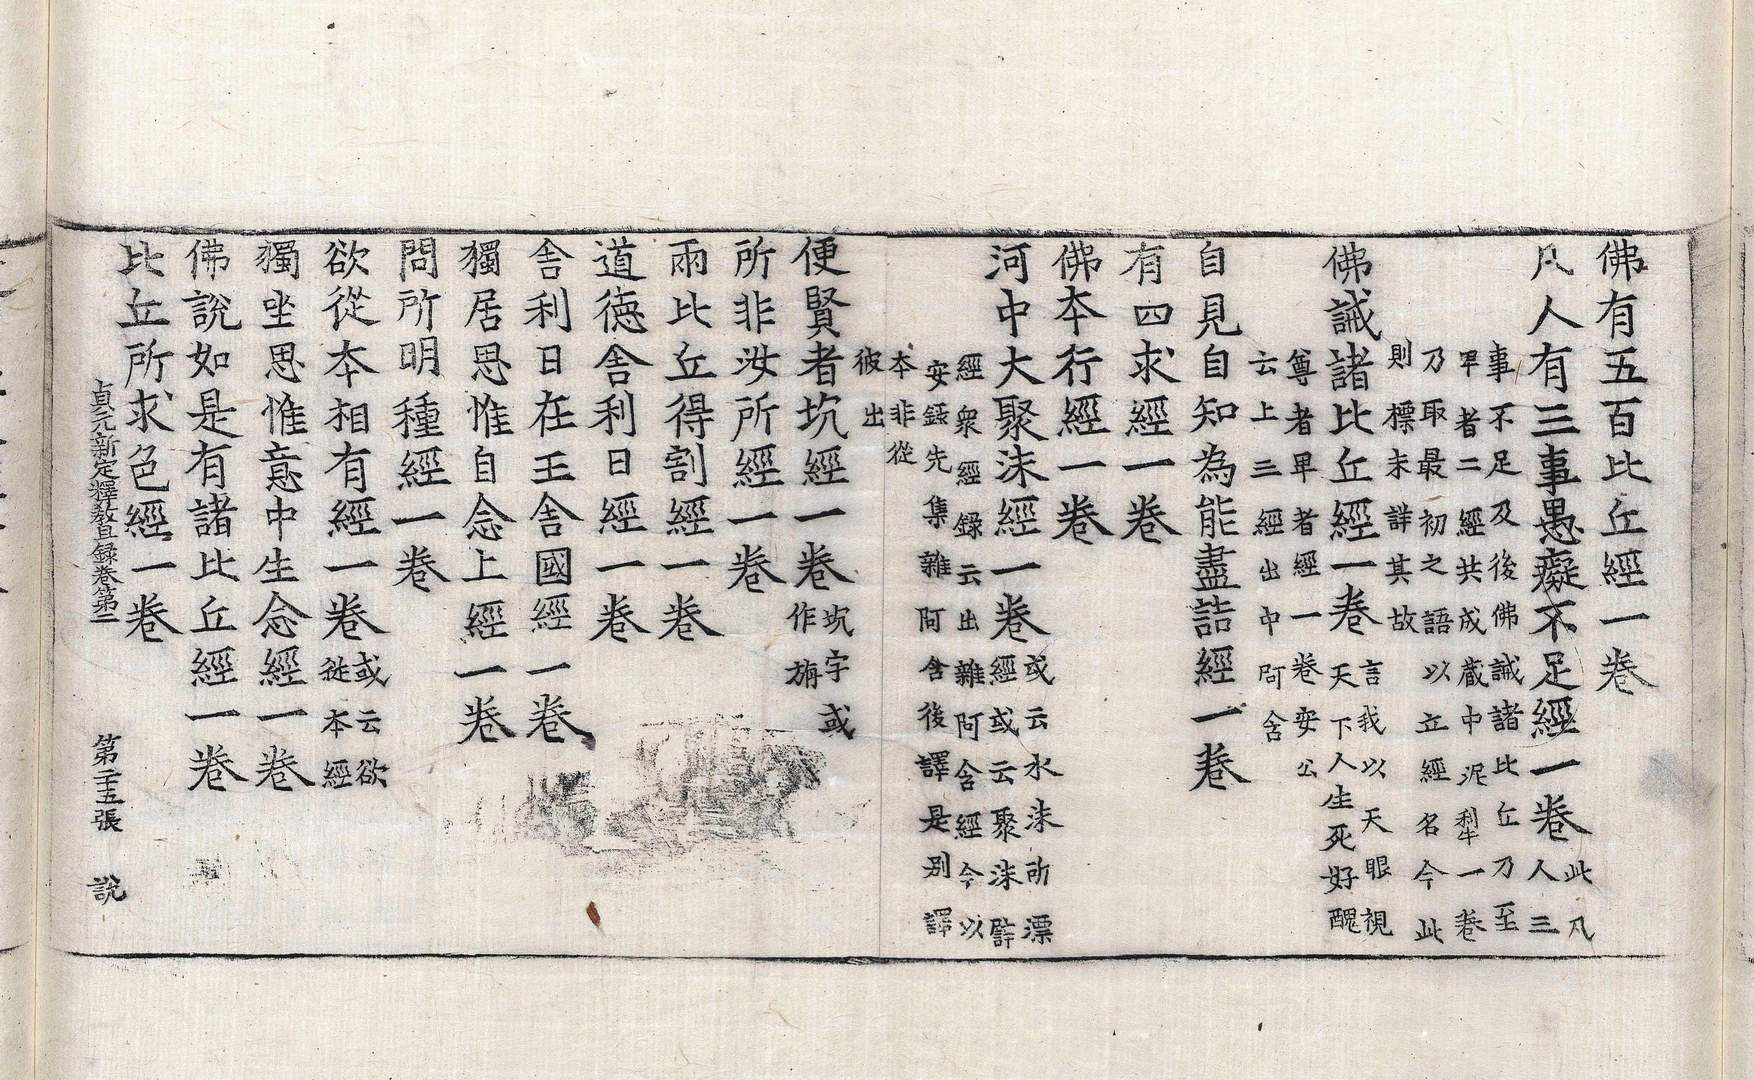 佛有五百比丘經一卷
凡人有三事愚癡不足經一卷此凡
人三
事不足及後佛誡諸比丘乃至
卑者二經共成藏中泥犁一卷
乃取最初之語以立經名今此
則標未詳其故
佛誡諸比丘經一卷言我以天眼視
天下人生死好醜
尊者卑者經一卷安公
云上三經出中阿含
自見自知為能盡詰經一卷
有四求經一卷
佛本行經一卷
河中大聚沫經一卷或云水沫所漂
經或云聚沫譬
經衆經録云出雜阿含經今以
安録先集雜阿含後譯是別譯
本非從
彼出
便賢者坑經一卷坑字或
作旃
所非汝所經一卷
兩比丘得割經一卷
道德舍利日經一卷
舍利日在王舍國經一卷
獨居思惟自念上經一卷
問所明種經一卷
欲從本相有經一卷或云欲
從本經
獨坐思惟意中生念經一卷
佛說如是有諸比丘經一卷
比丘所求色經一卷
貞元新定釋教目録卷第二 第二十五張 說